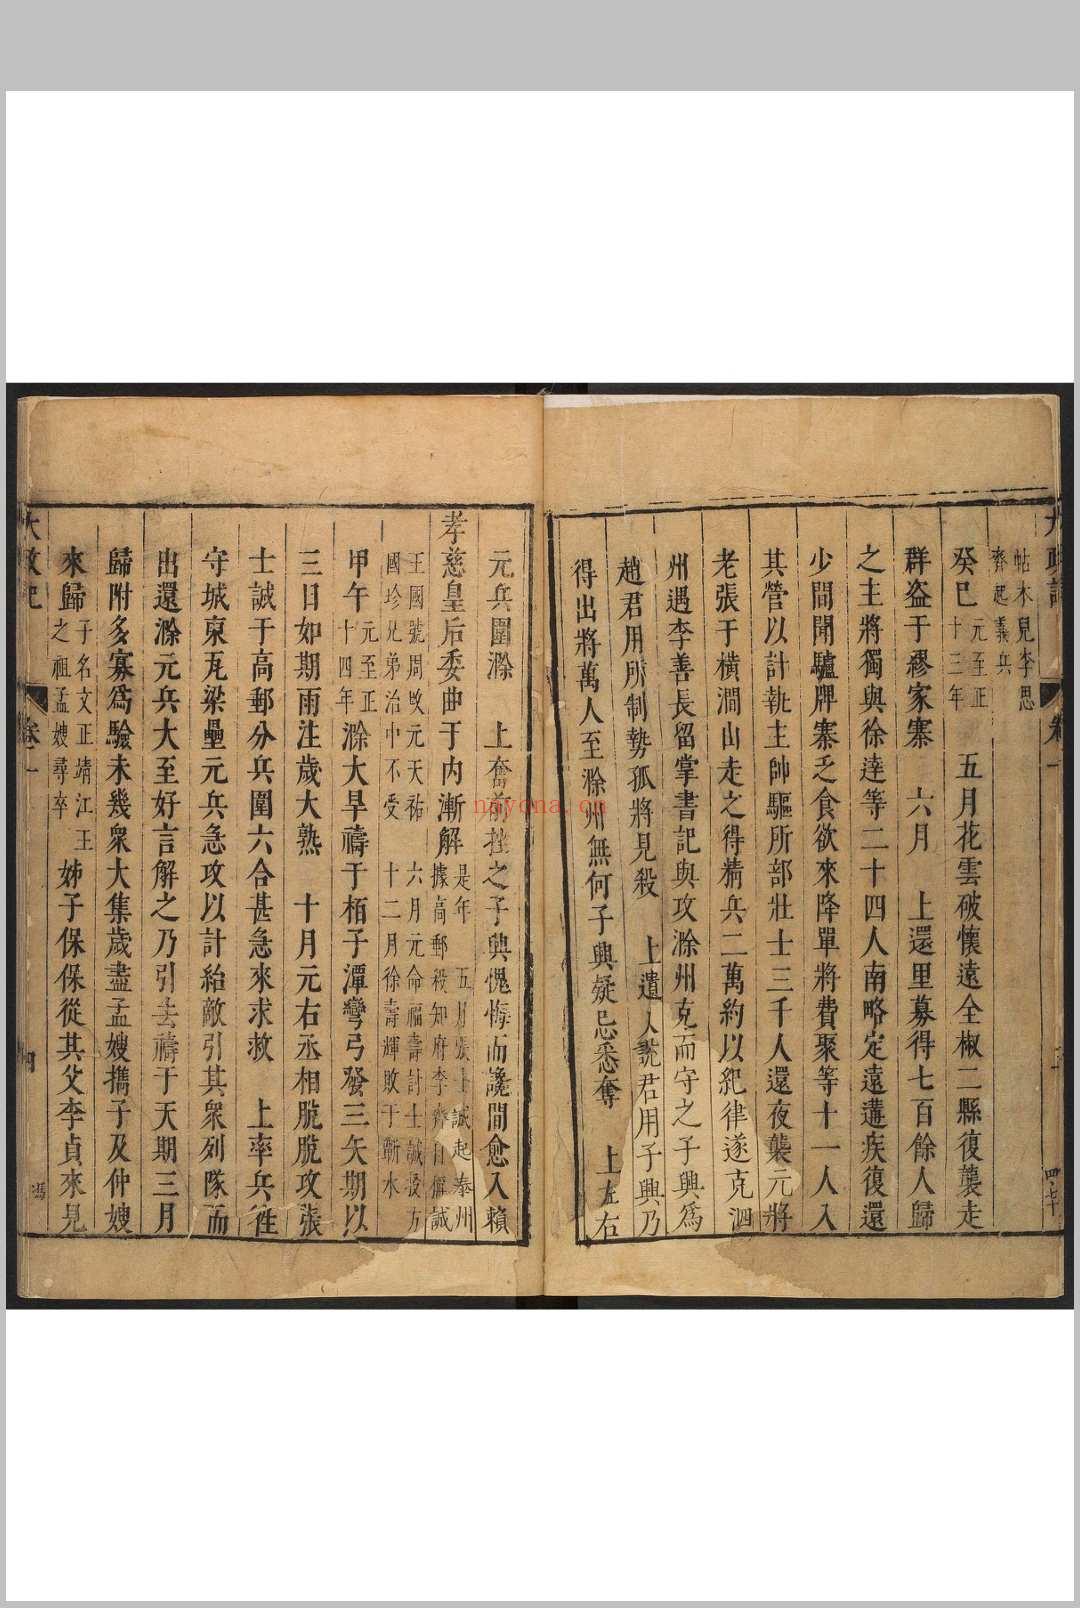 帖木兒李思
齊起義兵
癸巳元至正十三年　五月花雲破懷遠全椒二縣復襲走
群盜于繆家寨　六月　上還里募得七百餘人歸
之主將獨與徐達等二十四人南略定遠遘疾復還
少間聞驢牌寨乏食欲來降單將費聚等十一人入
其營以計執主帥驅所部壯士三千人還夜襲元將
老張于橫澗山走之得精兵二萬約以紀律遂克泗
州遇李善長留掌書記與攻滁州克而守之子興爲
趙君用所制勢孤將見殺　上遣人說君用子興乃
得出將萬人至滁州無何子興疑忌悉奪　上左右
元兵圍滁　上奮前挫之子興愧悔而讒間愈入賴
孝慈皇后委曲于內漸解是年　五月張士誠起泰州據高郵殺知府李齊自稱誠
王國號周改元天祐　六月元命福壽討士誠投方國珍兄弟治中不受　十二月徐壽輝敗于蘄水
甲午元至正十四年滁大旱禱于栢子潭彎弓發三矢期以
三日如期雨注歲大熟　十月元右丞相脫脫攻張
士誠于高郵分兵圍六合甚急來求救　上率兵徃
守城東瓦梁壘元兵急攻以計紿敵引其衆列隊而
出還滁元兵大至好言解之乃引去禱于天期三月
歸附多寡爲驗未幾衆大集歲盡孟嫂擕子及仲嫂
來歸子名文正靖江王之祖孟嫂尋卒姊子保保從其父李貞來見
大政記
卷一
四
馮
nayona.cn